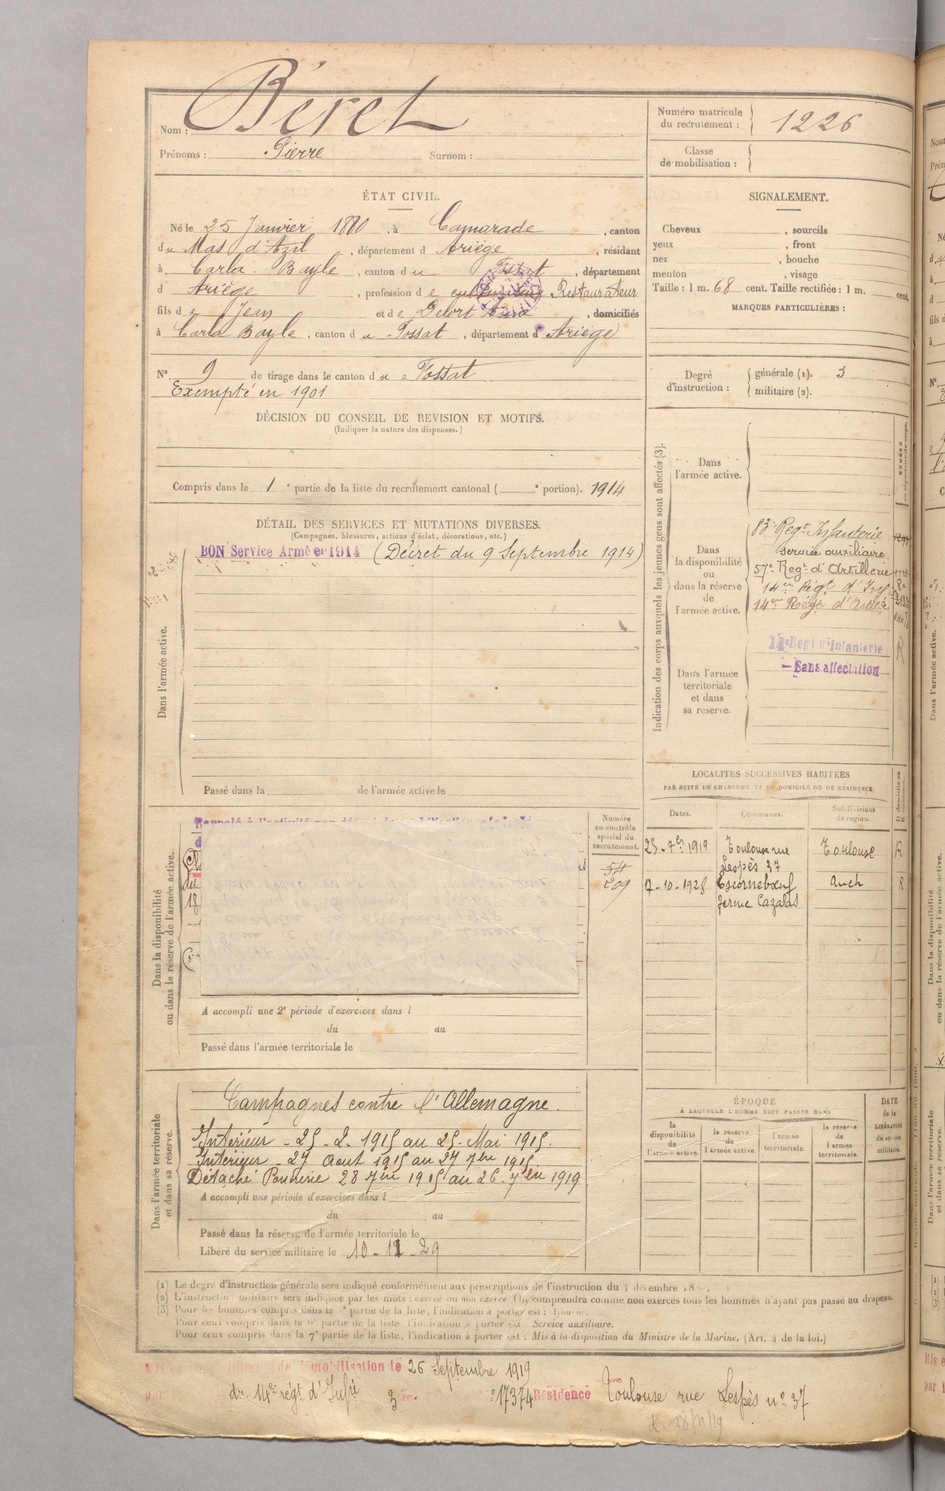 Nom : Béret
Prénoms : Pierre Surnom :
Numéro matricule
du recrutement : 1226
Classe
de mobilisation :
ÉTAT CIVIL.
Né le 25 Janvier 1880, à Camarade, canton
du Mas d'Azil, département d Ariège, résidant
à Carla-Bayle, canton du Fossat, département
d Ariège, profession de cultivateur Restaurateur
fils de Jean et de Delort, domiciliés
à Carla Bayle, canton du Fossat, département d Ariège
N° 9 de tirage dans le canton du Fossat
Exempté en 1901
SIGNALEMENT.
Cheveux , sourcils
yeux , front
nez , bouche
menton , visage
Taille : 1 m. 68 cent. Taille rectifiée : 1 m. cent.
MARQUES PARTICULIÈRES :
Degré
d'instruction :
générale (1). 3
militaire (2).
DÉCISION DU CONSEIL DE REVISION ET MOTIFS.
(Indiquer la nature des dispenses.)
Compris dans la 1e partie de la liste du recrutement cantonal ( e portion). 1914
DÉTAIL DES SERVICES ET MUTATIONS DIVERSES.
(Campagnes, blessures, actions d'éclat, décorations, etc.)
BON Service Armé en 1914 (Décret du 9 Septembre 1914)
Dans l'armée active.
Passé dans la de l'armée active le
Indication des corps auxquels les jeunes gens sont affectés (3).
Dans
l'armée active.
Dans
la disponibilité
ou
dans la réserve
de
l'armée active.
83e Regt Infanterie
service auxiliaire
57e Regt d'Artillerie
14e Régt d'Inf
14e Régt d'Artie
Dans l'armée
territoriale
et dans
sa réserve.
14e Regt d'Infanterie
Sans affectation
R
LOCALITÉS SUCCESSIVES HABITÉES
PAR SUITE DE CHANGEMENTS DE DOMICILE OU DE RÉSIDENCE.
Dates. Communes. Subdivisions
de région.
25-7bre 1919 Toulouse rue Toulouse R
Lespès 37
17-10-1928 Escornebœuf Auch R
ferme Cazalas
Dans la disponibilité
ou dans la réserve de l'armée active.
Rappelé à l'activité
Numéro
au contrôle
spécial du
recrutement.
A accompli une 2e période d'exercices dans l
du au
Passé dans l'armée territoriale le
Dans l'armée territoriale
et dans sa réserve.
Campagnes contre l'Allemagne.
Intérieur - 25-2-1915 au 25-Mai 1915.
Intérieur - 27 Aout 1915 au 27 7bre 1915
Détaché Poudrerie 28 7bre 1915 au 26-7bre 1919
A accompli une période d'exercices dans l
du au
Passé dans la réserve de l'armée territoriale le
Libéré du service militaire le 10-12-29
ÉPOQUE
À LAQUELLE L'HOMME DOIT PASSER DANS
DATE
de la
LIBÉRATION
du service
militaire.
la
disponibilité
de
l'armée active.
la réserve
de
l'armée active.
l'armée
territoriale.
la réserve
de
l'armée
territoriale.
(1) Le degré d'instruction générale sera indiqué conformément aux prescriptions de l'instruction du
(2) L'instruction militaire sera indiquée par les mots : exercé ou non exercé. On comprendra comme non exercés tous les hommes n'ayant pas passé au drapeau.
(3) Pour les hommes compris dans la partie de la liste, l'indication à porter est :
Pour ceux compris dans la 6e partie de la liste, l'indication à porter est : Service auxiliaire.
Pour ceux compris dans la 7e partie de la liste, l'indication à porter est : Mis à la disposition du Ministre de la Marine. (Art. 4 de la loi.)
de démobilisation le 26 Septembre 1919
par du 14e régt d'Infie 3 17374 Résidence Toulouse rue Lespès n° 37